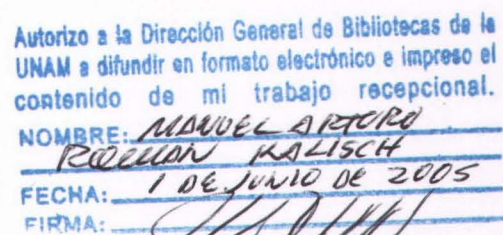 Autorizo a la Dirección General de Bibliotecas de la
UNAM a difundir en formato electrónico e impreso el
contenido de mi trabajo recepcional.
NOMBRE: MANUEL ARTURO
ROMAN KALISCH
FECHA: 1 DE JUNIO DE 2005
FIRMA: